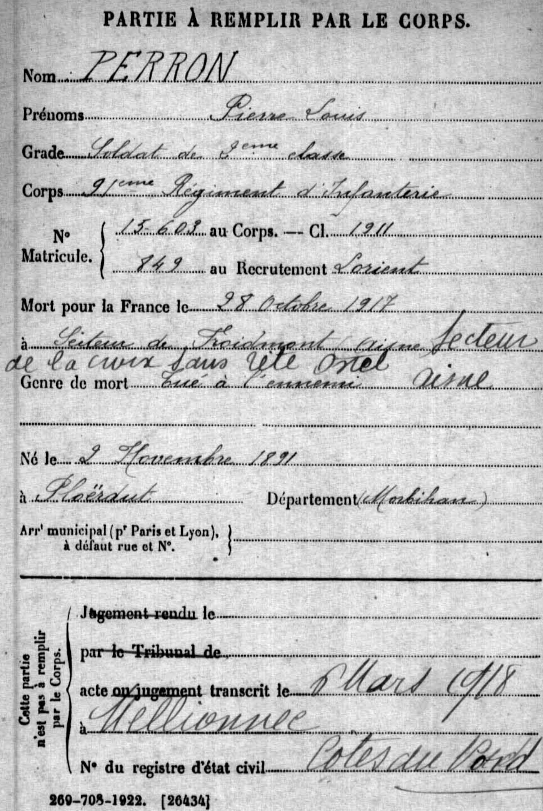 PARTIE À REMPLIR PAR LE CORPS.
Nom PERRON
Prénoms Pierre Louis
Grade Soldat de 2eme classe
Corps 91eme Régiment d'Infanterie
N° Matricule. 15-603 au Corps. — Cl. 1911
849 au Recrutement Lorient
Mort pour la France le 28 Octobre 1917
à Secteur de Froidmont Aisne Secteur
de la croix sans tête Ostel
Genre de mort Tué à l'ennemi Aisne
Né le 2 Novembre 1891
à Ploërdut Département (Morbihan)
Arrt municipal (pr Paris et Lyon),
à défaut rue et N°.
Cette partie
n'est pas à remplir
par le Corps.
Jugement rendu le
par le Tribunal de
acte ou jugement transcrit le 6 Mars 1918
à Mellionnec
Côtes du Nord
N° du registre d'état civil
269-708-1922. [26434]